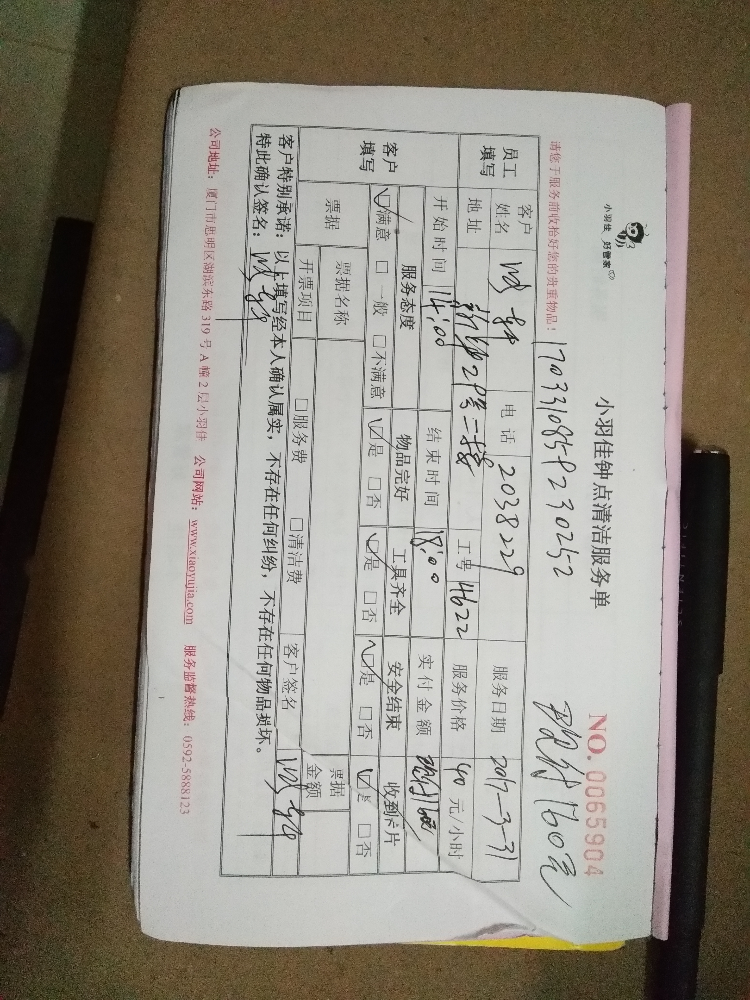 小羽佳 好管家
小羽佳钟点清洁服务单
NO. 0065904
请您于服务前收拾好您的贵重物品！
17033108589230252
现付160元
员工填写
客户姓名
电话 2038229
服务日期 2017-3-31
地址
28号二楼
工号 4622
服务价格 40 元/小时
开始时间 14:00
结束时间 18:00
实付金额
客户填写
服务态度 物品完好 工具齐全 安全结束 收到卡片
☑满意 □一般 □不满意 ☑是 □否 ☑是 □否 ☑是 □否 ☑是 □否
票据
票据名称
票据金额
开票项目 □服务费 □清洁费
客户签名
客户特别承诺：以上填写经本人确认属实，不存在任何纠纷，不存在任何物品损坏。
特此确认签名：
公司地址：厦门市思明区湖滨东路 319 号 A 幢 2 层小羽佳 公司网站：www.xiaoyujia.com 服务监督热线：0592-5888123